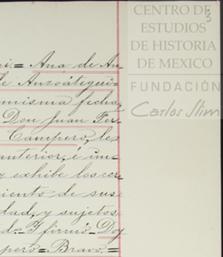 CENTRO DE
ESTUDIOS
DE HISTORIA
DE MEXICO
FUNDACIÓN
Carlos Slim
5
ri= Ana de An
de Anzoátegui
misma ficha,
Don Juan Fer
Campero, les
anterior, é im
y exhibe los cor
miento de sus
dad, y sujetos
do. Y firmó= Doy
pero= Bravo.=